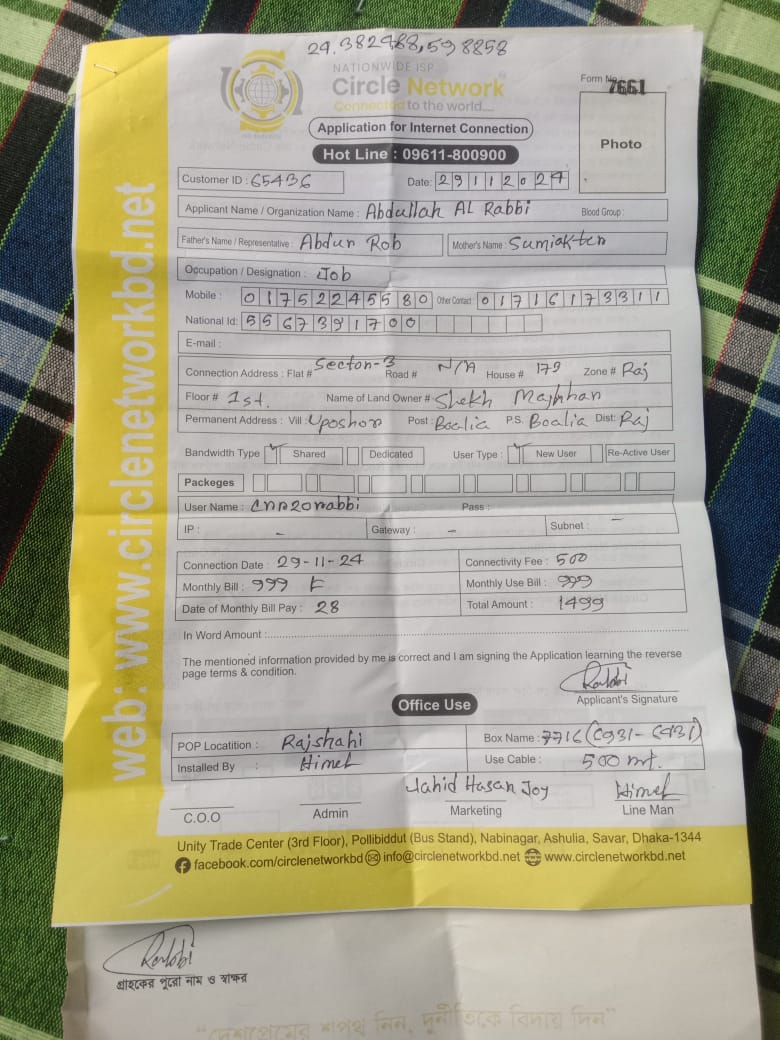 24.382488,598858
NATIONWIDE ISP
Circle Network
Connected to the world....
Form No. 7661
Application for Internet Connection
Photo
Hot Line : 09611-800900
Customer ID : 65436 Date: 29112024
Applicant Name / Organization Name : Abdullah AL Rabbi Blood Group :
Father's Name / Representative : Abdur Rob Mother's Name : Sumiakten
Occupation / Designation : Job
Mobile : 01752245580 Other Contact 01716173311
National Id: 5567391700
E-mail :
Connection Address : Flat # Sector-3 Road # N/A House # 179 Zone # Raj
Floor # 1st. Name of Land Owner # Shekh
Permanent Address : Vill : Uposhor Post : Boalia P.S. Boalia Dist: Raj
Bandwidth Type ✓ Shared Dedicated User Type : ✓ New User Re-Active User
Packeges
User Name : cnn20rabbi Pass :
IP : - Gateway : - Subnet : -
Connection Date : 29-11-24 Connectivity Fee : 500
Monthly Bill : 999 Monthly Use Bill : 999
Date of Monthly Bill Pay : 28 Total Amount : 1499
In Word Amount :
The mentioned information provided by me is correct and I am signing the Application learning the reverse
page terms & condition.
Rabbi
Applicant's Signature
Office Use
POP Locatition : Rajshahi Box Name : 7716
Installed By : Himel Use Cable : 500 mt.
Jahid Hasan Joy Himel
C.O.O Admin Marketing Line Man
Unity Trade Center (3rd Floor), Pollibiddut (Bus Stand), Nabinagar, Ashulia, Savar, Dhaka-1344
facebook.com/circlenetworkbd info@circlenetworkbd.net www.circlenetworkbd.net
web: www.circlenetworkbd.net
Rabbi
গ্রাহকের পুরো নাম ও স্বাক্ষর
"দেশপ্রেমের শপথ নিন, দুর্নীতিকে বিদায় দিন"